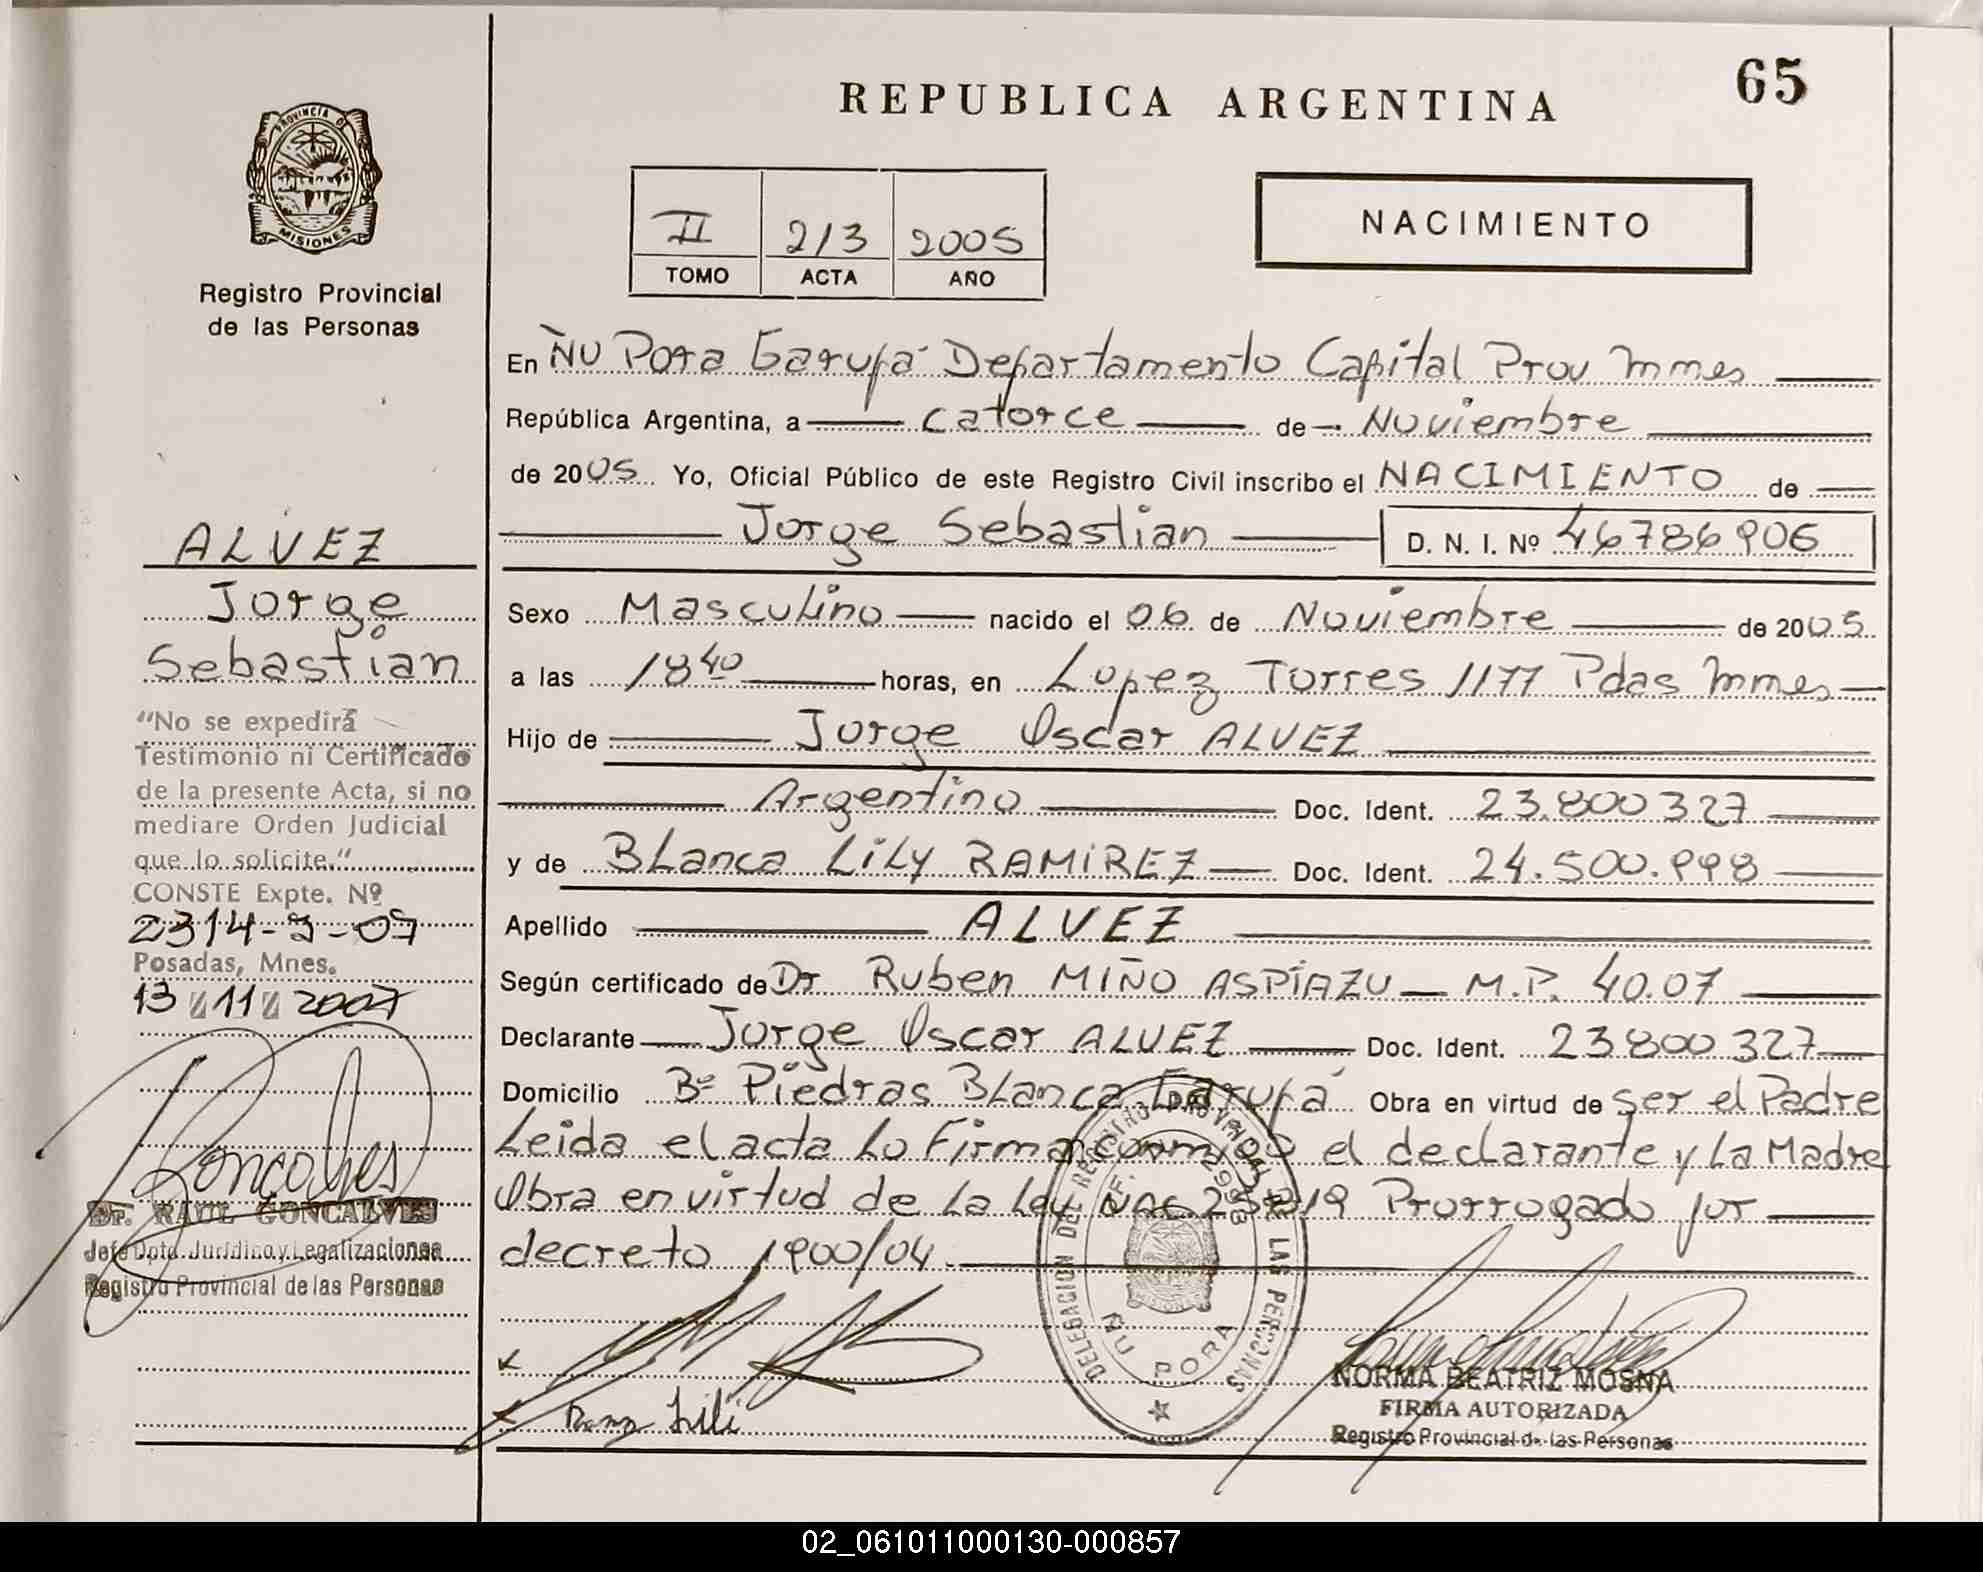 65
REPUBLICA ARGENTINA
PROVINCIA DE
MISIONES
Registro Provincial
de las Personas
II 213 2005
TOMO ACTA AÑO
NACIMIENTO
En ÑU Pora Garupá Departamento Capital Prov Mnes
República Argentina, a catorce de Noviembre
de 2005 Yo, Oficial Público de este Registro Civil inscribo el NACIMIENTO de
Jorge Sebastian D. N. I. Nº 46786906
Sexo Masculino nacido el 06 de Noviembre de 2005
a las 18 40 horas, en Lopez Torres 1177 Pdas Mnes
Hijo de Jorge Oscar ALVEZ
Argentino Doc. Ident. 23.800327
y de BLanca LiLy RAMiREZ Doc. Ident. 24.500.998
Apellido ALVEZ
Según certificado de Dr Ruben MIÑO ASPIAZU M.P. 40.07
Declarante Jorge Oscar ALVEZ Doc. Ident. 23.800327
Domicilio Bº Piedras BLanca Garupá Obra en virtud de ser el Padre
Leida el acta Lo Firman conmigo el declarante y La Madre
Obra en virtud de La Ley Nac 25819 Prorrogado por
decreto 1900/04
ALVEZ
Jorge
Sebastian
"No se expedirá
Testimonio ni Certificado
de la presente Acta, si no
mediare Orden Judicial
que lo solicite."
CONSTE Expte. Nº
2314-J-07
Posadas, Mnes.
13 11 2007
Goncalves
Dr. RAUL GONCALVES
Jefe Dpto. Jurídico y Legalizaciones
Registro Provincial de las Personas
DELEGACION DEL REGISTRO PROVINCIAL DE LAS PERSONAS
ÑU PORA
Lili
NORMA BEATRIZ MOSNA
FIRMA AUTORIZADA
Registro Provincial de las Personas
02_061011000130-000857